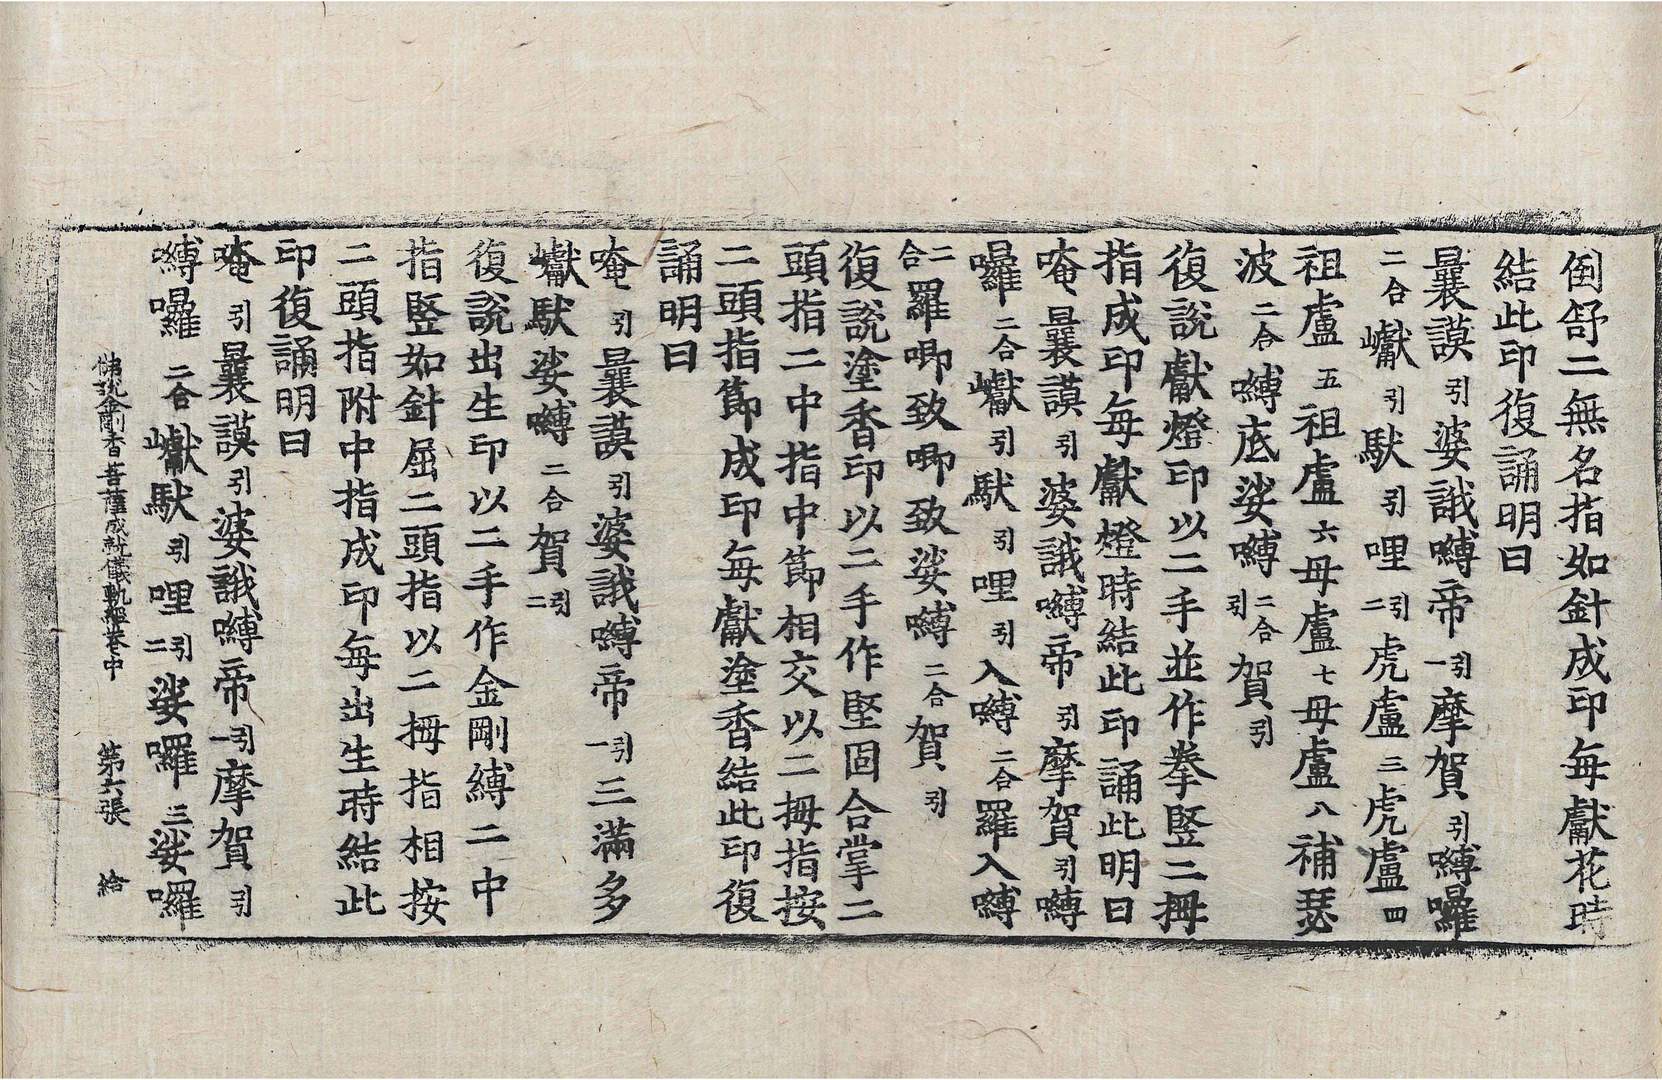 倒舒二無名指如針成印每獻花時
結此印復誦明曰
曩謨引婆誐嚩帝引一摩賀引嚩囉
二合巘引馱引哩引二虎盧三虎盧四
祖盧五祖盧六母盧七母盧八補瑟
波二合嚩底娑嚩二合引賀引
復說獻燈印以二手並作拳竪二拇
指成印每獻燈時結此印誦此明曰
唵引曩謨引婆誐嚩帝引摩賀引嚩
囉二合巘引馱引哩引入嚩二合羅入嚩
二合羅唧致唧致娑嚩二合賀引
復說塗香印以二手作堅固合掌二
頭指二中指中節相交以二拇指按
二頭指節成印每獻塗香結此印復
誦明曰
唵引曩謨引婆誐嚩帝引一三滿多
巘馱娑嚩二合賀引二
復說出生印以二手作金剛縛二中
指竪如針屈二頭指以二拇指相按
二頭指附中指成印每出生時結此
印復誦明曰
唵引曩謨引婆誐嚩帝引一摩賀引
嚩囉二合巘馱引哩引二娑囉三娑囉
佛說金剛香菩薩成就儀軌經卷中 第六張 給